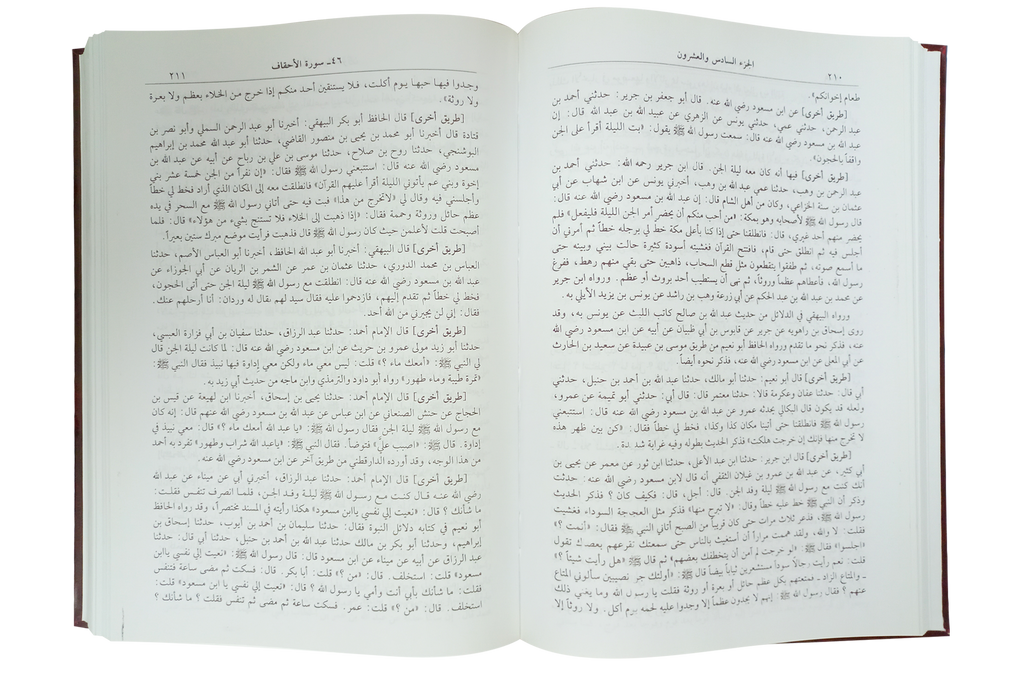 الجزء السادس والعشرون
٢١٠
طعام إخوانكم».
[طريق أخرى] عن ابن مسعود رضي الله عنه. قال أبو جعفر بن جرير: حدثني أحمد بن
عبد الرحمن، حدثني عمي، حدثني يونس عن الزهري عن عبيد الله بن عبد الله قال: إن
عبد الله بن مسعود رضي الله عنه قال: سمعت رسول الله ﷺ يقول: «بت الليلة أقرأ على الجن
واقفاً بالحجون».
[طريق أخرى] فيها أنه كان معه ليلة الجن. قال ابن جرير رحمه الله: حدثني أحمد بن
عبد الرحمن بن وهب، حدثنا عمي عبد الله بن وهب، أخبرني يونس عن ابن شهاب عن أبي
عثمان بن سنة الخزاعي، وكان من أهل الشام قال: إن عبد الله بن مسعود رضي الله عنه قال:
قال رسول الله ﷺ لأصحابه وهو بمكة: «من أحب منكم أن يحضر أمر الجن الليلة فليفعل» فلم
يحضر منهم أحد غيري، قال: فانطلقنا حتى إذا كنا بأعلى مكة خط لي برجله خطاً ثم أمرني أن
أجلس فيه ثم انطلق حتى قام، فافتتح القرآن فغشيته أسودة كثيرة حالت بيني وبينه حتى
ما أسمع صوته، ثم طفقوا يتقطعون مثل قطع السحاب، ذاهبين حتى بقي منهم رهط، ففرغ
رسول الله ﷺ مع الفجر فانطلق
رسول الله، فأعطاهم عظماً وروثاً، ثم نهى أن يستطيب أحد بروث أو عظم. ورواه ابن جرير
عن محمد بن عبد الله بن عبد الحكم عن أبي زرعة وهب بن راشد عن يونس بن يزيد الأيلي به.
ورواه البيهقي في الدلائل من حديث عبد الله بن صالح كاتب الليث عن يونس به، وقد
روى إسحاق بن راهويه عن جرير عن قابوس بن أبي ظبيان عن أبيه عن ابن مسعود رضي الله
عنه، فذكر نحو ما تقدم ورواه الحافظ أبو نعيم من طريق موسى بن عبيدة عن سعيد بن الحارث
عن أبي المعلى عن ابن مسعود رضي الله عنه، فذكر نحوه أيضاً.
[طريق أخرى] قال أبو نعيم: حدثنا أبو مالك، حدثنا عبد الله بن أحمد بن حنبل، حدثني
أبي قال: حدثنا عفان وعكرمة قالا: حدثنا معتمر قال: قال أبي: حدثني أبو تميمة عن عمرو،
ولعله قد يكون قال البكالي يحدثه عمرو عن عبد الله بن مسعود رضي الله عنه قال: استتبعني
رسول الله ﷺ فانطلقنا حتى أتينا مكان كذا وكذا، فخط لي خطاً فقال: «كن بين ظهر هذه
لا تخرج منها فإنك إن خرجت هلكت» فذكر الحديث بطوله وفيه غرابة شديدة.
[طريق أخرى] قال ابن جرير: حدثنا ابن عبد الأعلى، حدثنا ابن ثور عن معمر عن يحيى بن
أبي كثير، عن عبد الله بن عمرو بن غيلان الثقفي أنه قال لابن مسعود رضي الله عنه: حدثت
أنك كنت مع رسول الله ﷺ ليلة وفد الجن. قال: أجل، قال: فكيف كان؟ فذكر الحديث
وذكر أن النبي ﷺ خط عليه خطاً وقال: «لا تبرح منها» فذكر مثل العجاجة السوداء فغشيت
رسول الله ﷺ، فذعر ثلاث مرات حتى كان قريباً من الصبح أتاني النبي ﷺ فقال: «أنمت؟»
فقلت: لا والله، ولقد هممت مراراً أن أستغيث بالناس حتى سمعتك تقرعهم بعصاك تقول
«اجلسوا» فقال ﷺ: «لو خرجت لم آمن أن يتخطفك بعضهم» ثم قال ﷺ «هل رأيت شيئاً؟»
قلت: نعم رأيت رجالاً سوداً مستشعرين ثياباً بياضاً قال ﷺ: «أولئك جن نصيبين سألوني المتاع
ـ والمتاع الزاد ـ فمتعتهم بكل عظم حائل أو بعرة أو روثة فقلت يا رسول الله وما يغني ذلك
عنهم؟ فقال رسول الله ﷺ: إنهم لا يجدون عظماً إلا وجدوا عليه لحمه يوم أكل. ولا روثاً إلا
٤٦ـ سورة الأحقاف
٢١١
وجدوا فيها حبها يوم أكلت، فلا يستنقين أحد منكم إذا خرج من الخلاء بعظم ولا بعرة
ولا روثة».
[طريق أخرى] قال الحافظ أبو بكر البيهقي: أخبرنا أبو عبد الرحمن السلمي وأبو نصر بن
قتادة قال أخبرنا أبو محمد بن يحيى بن منصور القاضي، حدثنا أبو عبد الله محمد بن إبراهيم
البوشنجي، حدثنا روح بن صلاح، حدثنا موسى بن علي بن رباح عن أبيه عن عبد الله بن
مسعود رضي الله عنه قال: استتبعني رسول الله ﷺ فقال: «إن نفراً من الجن خمسة عشر بني
إخوة وبني عم يأتوني الليلة أقرأ عليهم القرآن» فانطلقت معه إلى المكان الذي أراد فخط لي خطاً
وأجلسني فيه وقال لي «لاتخرج من هذا» فبت فيه حتى أتاني رسول الله ﷺ مع السحر في يده
عظم حائل وروثة وحممة فقال: «إذا ذهبت إلى الخلاء فلا تستنج بشيء من هؤلاء» قال: فلما
أصبحت قلت لأعلمن حيث كان رسول الله ﷺ قال فذهبت فرأيت موضع مبرك ستين بعيراً.
[طريق أخرى] قال البيهقي: أخبرنا أبو عبد الله الحافظ، أخبرنا أبو العباس الأصم، حدثنا
العباس بن محمد الدوري، حدثنا عثمان بن عمر عن الشمر بن الريان عن أبي الجوزاء عن
عبد الله بن مسعود رضي الله عنه قال: انطلقت مع رسول الله ﷺ ليلة الجن حتى أتى الحجون،
فخط لي خطاً ثم تقدم إليهم، فازدحموا عليه فقال سيد لهم يقال له وردان: أنا أرحلهم عنك.
فقال: إني لن يجيرني من الله أحد.
[طريق أخرى] قال الإمام أحمد: حدثنا عبد الرزاق، حدثنا سفيان بن أبي فزارة العبسي،
حدثنا أبو زيد مولى عمرو بن حريث عن ابن مسعود رضي الله عنه قال: لما كانت ليلة الجن قال
لي النبي ﷺ: «أمعك ماء؟» قلت: ليس معي ماء ولكن معي إداوة فيها نبيذ فقال النبي ﷺ:
«تمرة طيبة وماء طهور» رواه أبو داود والترمذي وابن ماجه من حديث أبي زيد به.
[طريق أخرى] قال الإمام أحمد: حدثنا يحيى بن إسحاق، أخبرنا ابن لهيعة عن قيس بن
الحجاج عن حنش الصنعاني عن ابن عباس عن عبد الله بن مسعود رضي الله عنهم قال: إنه كان
مع رسول الله ﷺ ليلة الجن فقال رسول الله ﷺ: «يا عبد الله أمعك ماء؟» قال: معي نبيذ في
إداوة. قال ﷺ: «اصبب عليَّ» فتوضأ. فقال النبي ﷺ: «ياعبد الله شراب وطهور» تفرد به أحمد
من هذا الوجه، وقد أورده الدارقطني من طريق آخر عن ابن مسعود رضي الله عنه.
[طريق أخرى] قال الإمام أحمد: حدثنا عبد الرزاق، أخبرني أبي عن ميناء عن عبد الله
رضي الله عنه قال كنت مع رسول الله ﷺ ليلة وفد الجن، فلما انصرف تنفس فقلت:
ما شأنك؟ قال: «نعيت إلي نفسي ياابن مسعود» هكذا رأيته في المسند مختصراً، وقد رواه الحافظ
أبو نعيم في كتابه دلائل النبوة فقال: حدثنا سليمان بن أحمد بن أيوب، حدثنا إسحاق بن
إبراهيم، وحدثنا أبو بكر بن مالك حدثنا عبد الله بن أحمد بن حنبل، حدثنا أبي قال: حدثنا
عبد الرزاق عن أبيه عن ميناء عن ابن مسعود قال: قال رسول الله ﷺ: «نعيت إلي نفسي ياابن
مسعود» قلت: استخلف. قال: «من؟» قلت: أبا بكر. قال: فسكت ثم مضى ساعة فتنفس
فقلت: ما شأنك بأبي أنت وأمي يا رسول الله؟ قال: «نعيت إلي نفسي يا ابن مسعود» قلت:
استخلف. قال: «من؟» قلت: عمر. فسكت ساعة ثم مضى ثم تنفس فقلت؟ ما شأنك؟